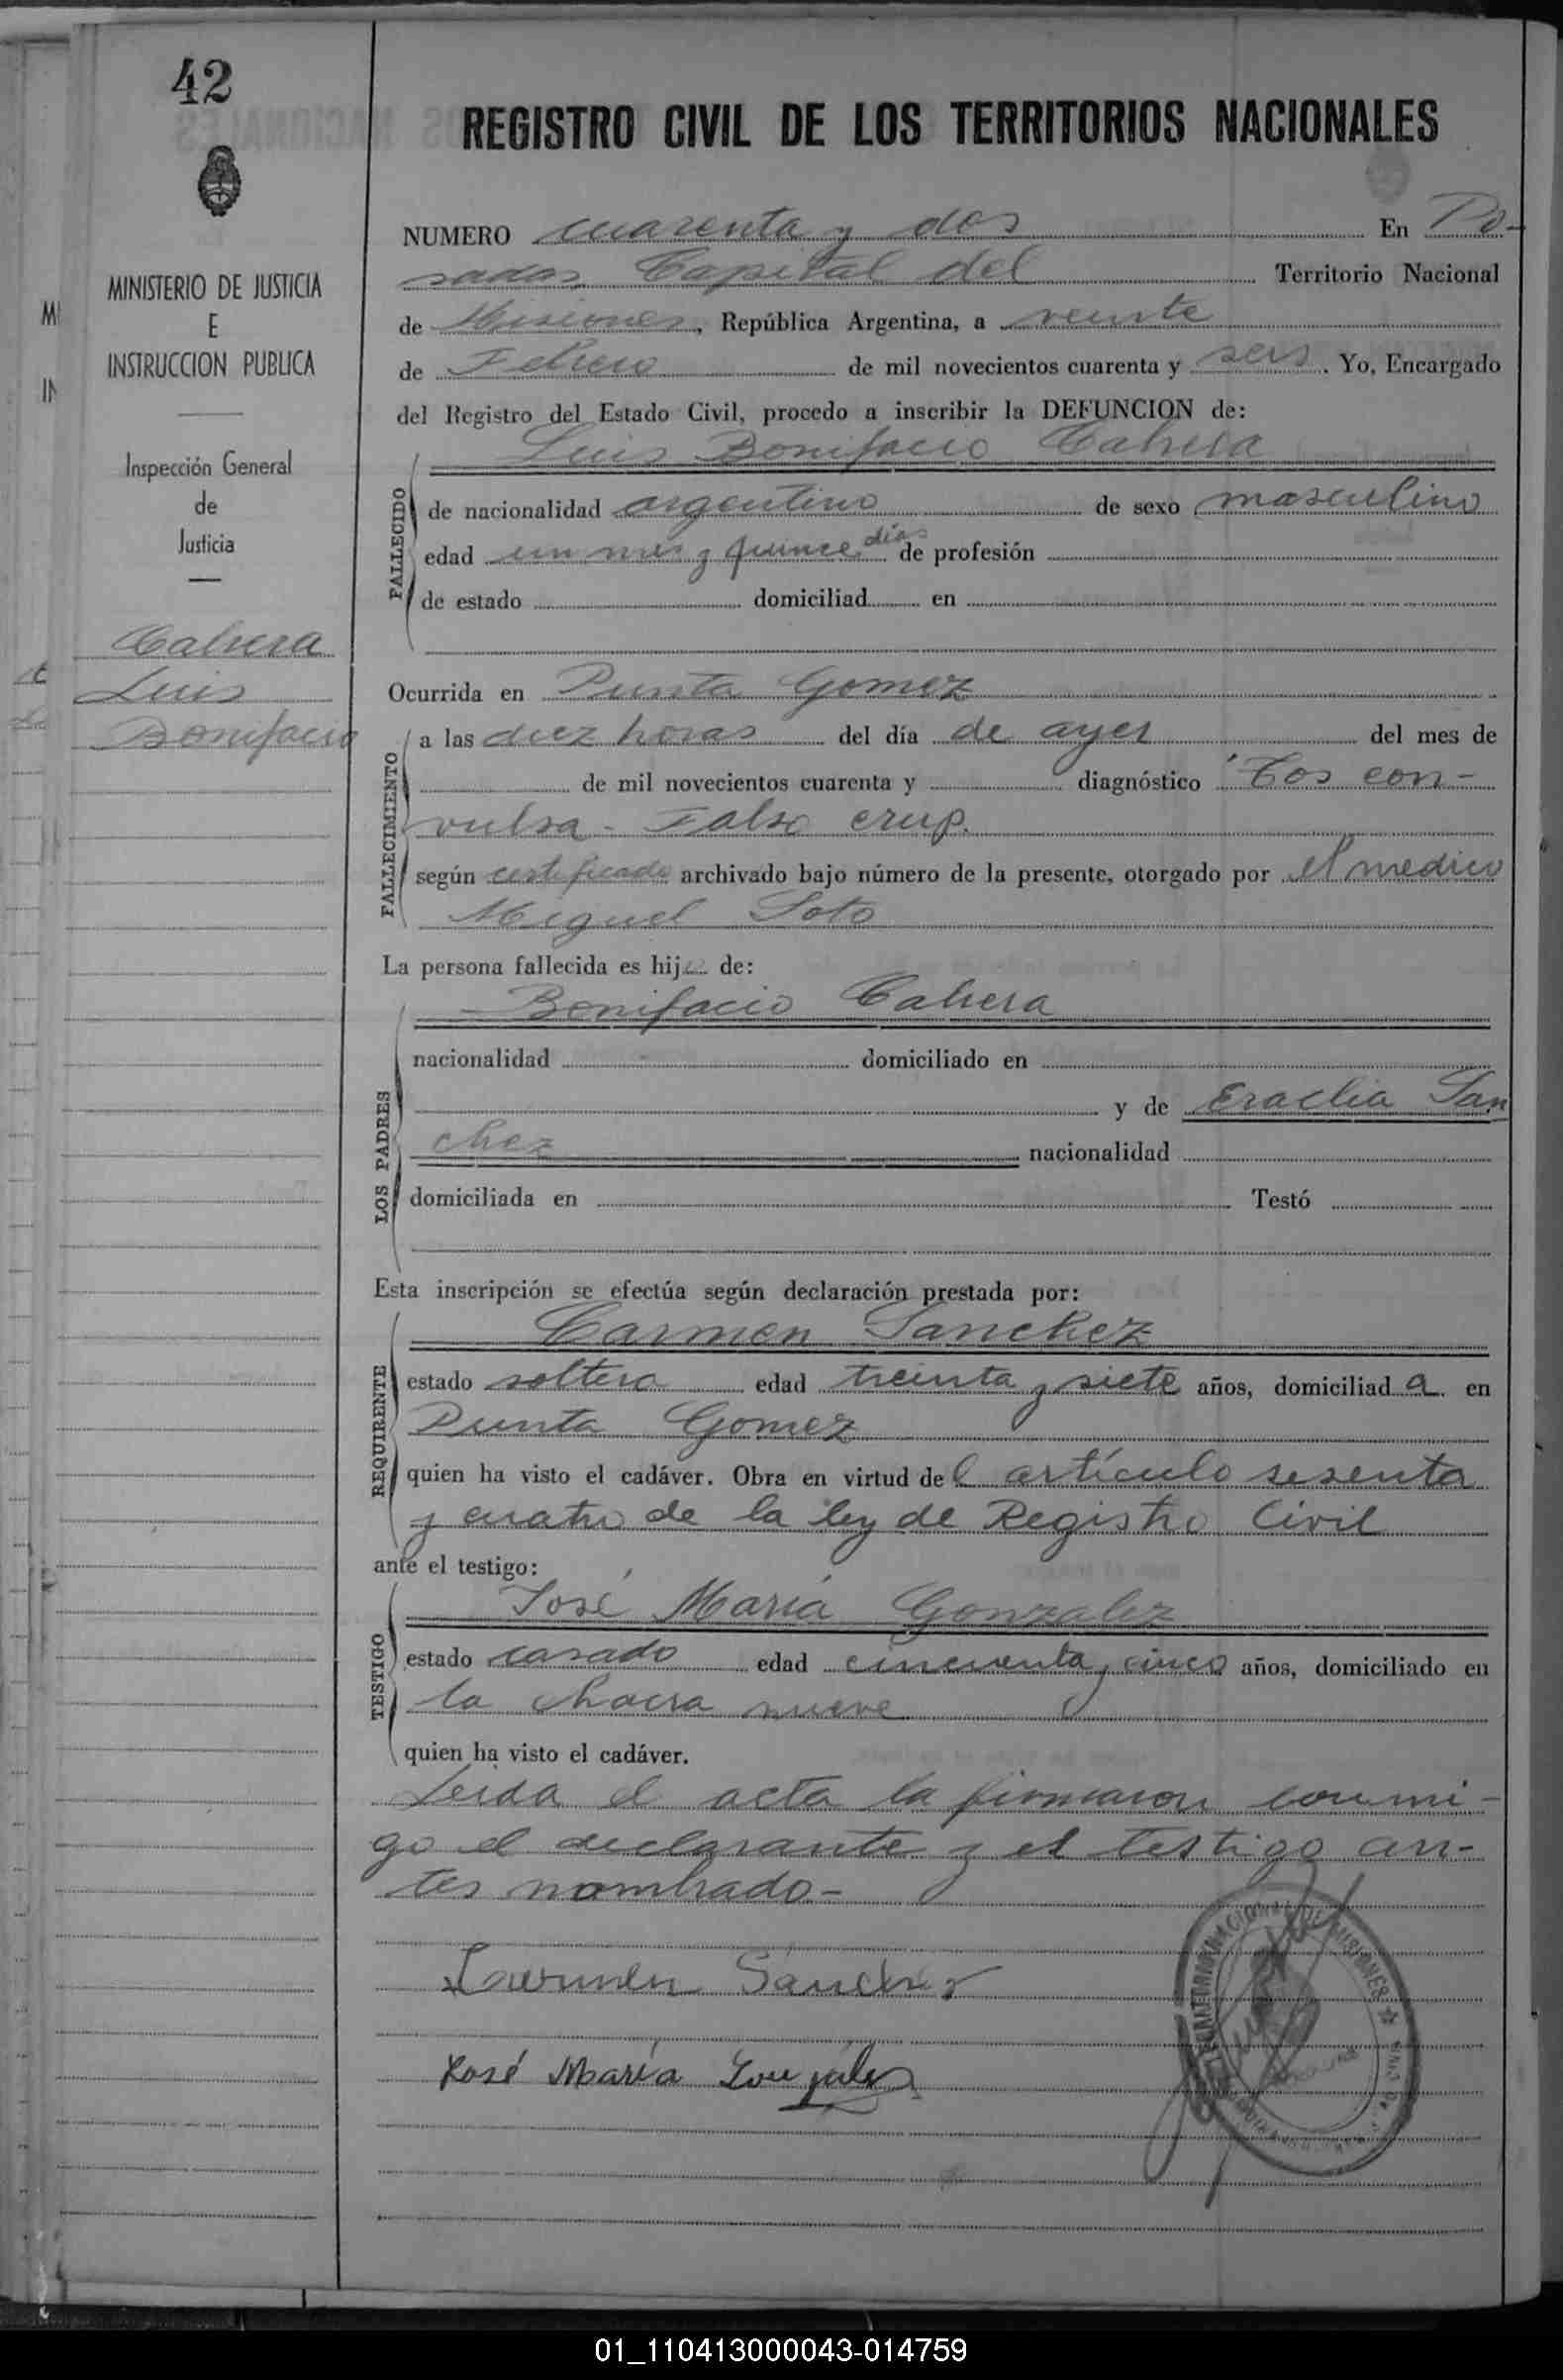 42
MINISTERIO DE JUSTICIA
E
INSTRUCCION PUBLICA
Inspección General
de
Justicia
Cabrera
Luis
Bonifacio
REGISTRO CIVIL DE LOS TERRITORIOS NACIONALES
NUMERO cuarenta y dos En Po-
sadas, Capital del Territorio Nacional
de Misiones, República Argentina, a veinte
de Febrero de mil novecientos cuarenta y seis. Yo, Encargado
del Registro del Estado Civil, procedo a inscribir la DEFUNCION de:
Luis Bonifacio Cabrera
FALLECIDO
de nacionalidad argentino de sexo masculino
edad un mes y quince días de profesión
de estado domiciliad en
Ocurrida en Punta Gomez
FALLECIMIENTO
a las diez horas del día de ayer del mes de
de mil novecientos cuarenta y diagnóstico Tos con-
vulsa - Falso crup.
según certificado archivado bajo número de la presente, otorgado por el medico
Miguel Soto
La persona fallecida es hijo de:
Bonifacio Cabrera
LOS PADRES
nacionalidad domiciliado en
y de Eraclia San
chez nacionalidad
domiciliada en Testó
Esta inscripción se efectúa según declaración prestada por:
Carmen Sanchez
REQUIRENTE
estado soltera edad treinta y siete años, domiciliad a en
Punta Gomez
quien ha visto el cadáver. Obra en virtud del artículo sesenta
y cuatro de la ley de Registro Civil
ante el testigo:
José María Gonzalez
TESTIGO
estado casado edad cincuenta y cinco años, domiciliado en
la chacra nueve
quien ha visto el cadáver.
Leida el acta la firmaron conmi-
go el declarante y el testigo an-
tes nombrado-
Carmen Sánchez
José María Gonzales
MISIONES
01_110413000043-014759